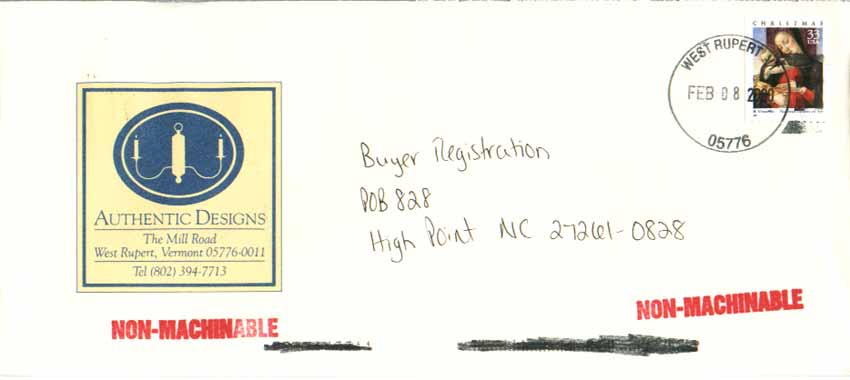 CHRISTMAS
33
USA
WEST RUPERT
FEB 08
05776
Buyer Registration
POB 828
High Point NC 27261-0828
AUTHENTIC DESIGNS
The Mill Road
West Rupert, Vermont 05776-0011
Tel (802) 394-7713
NON-MACHINABLE
NON-MACHINABLE